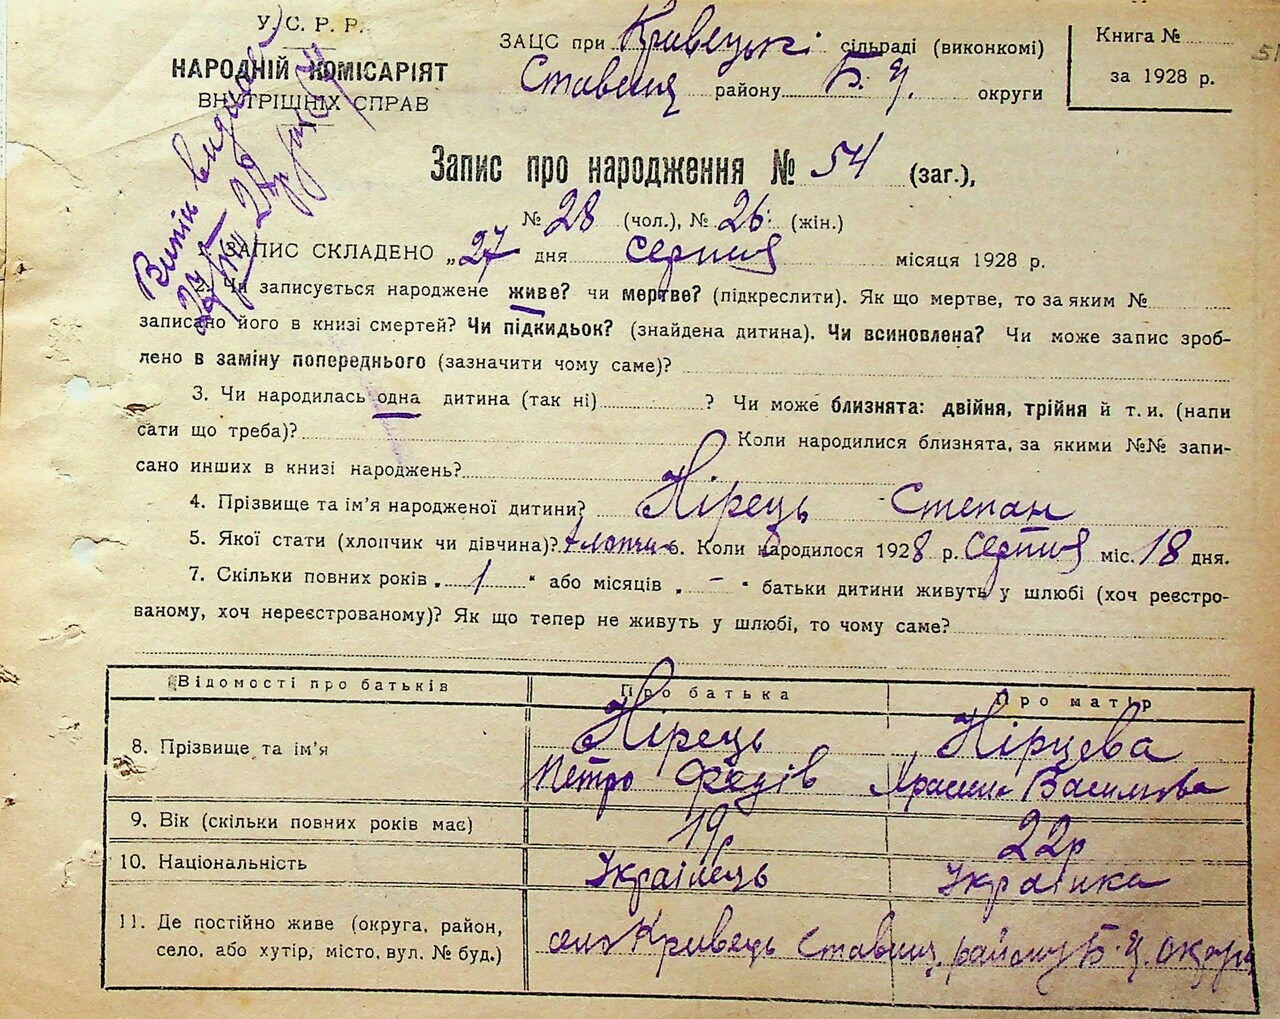 У. С. Р. Р.
НАРОДНІЙ КОМІСАРІЯТ
ВНУТРІШНІХ СПРАВ
ЗАЦС при Кривецькі сільраді (виконкомі)
Ставищ району Б. Ц. округи
Книга №
за 1928 р.
51
Запис про народження № 54 (заг.),
№ 28 (чол.), № 26 (жін.)
ЗАПИС СКЛАДЕНО „27 дня серпня місяця 1928 р.
Чи записується народжене живе? чи мертве? (підкреслити). Як що мертве, то за яким №
записано його в книзі смертей? Чи підкидьок? (знайдена дитина). Чи всиновлена? Чи може запис зроб-
лено в заміну попереднього (зазначити чому саме)?
3. Чи народилась одна дитина (так ні) ? Чи може близнята: двійня, трійня й т. и. (напи
сати що треба)? Коли народилися близнята, за якими №№ запи-
сано инших в книзі народжень?
4. Прізвище та ім'я народженої дитини? Нірець Степан
5. Якої стати (хлопчик чи дівчина)? хлопчи 6. Коли народилося 1928 р. Серпня міс. 18 дня.
7. Скільки повних років „ 1 “ або місяців „ – “ батьки дитини живуть у шлюбі (хоч реєстро-
ваному, хоч нереєстрованому)? Як що тепер не живуть у шлюбі, то чому саме?
Відомості про батьків Про батька Про матір
8. Прізвище та ім'я Нірець Нірцева
Петро Федів Василова
9. Вік (скільки повних років має) 19р 22р
10. Національність Українець Українка
11. Де постійно живе (округа, район,
село, або хутір, місто, вул. № буд.) село Кривець Ставищ. району Б. Ц. округи